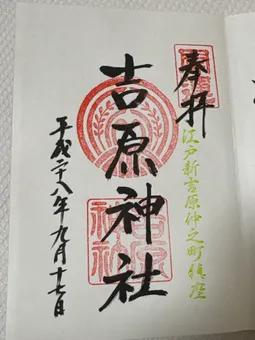 奉拝
江戸新吉原仲之町鎮座
吉原神社
平成二十八年九月十七日